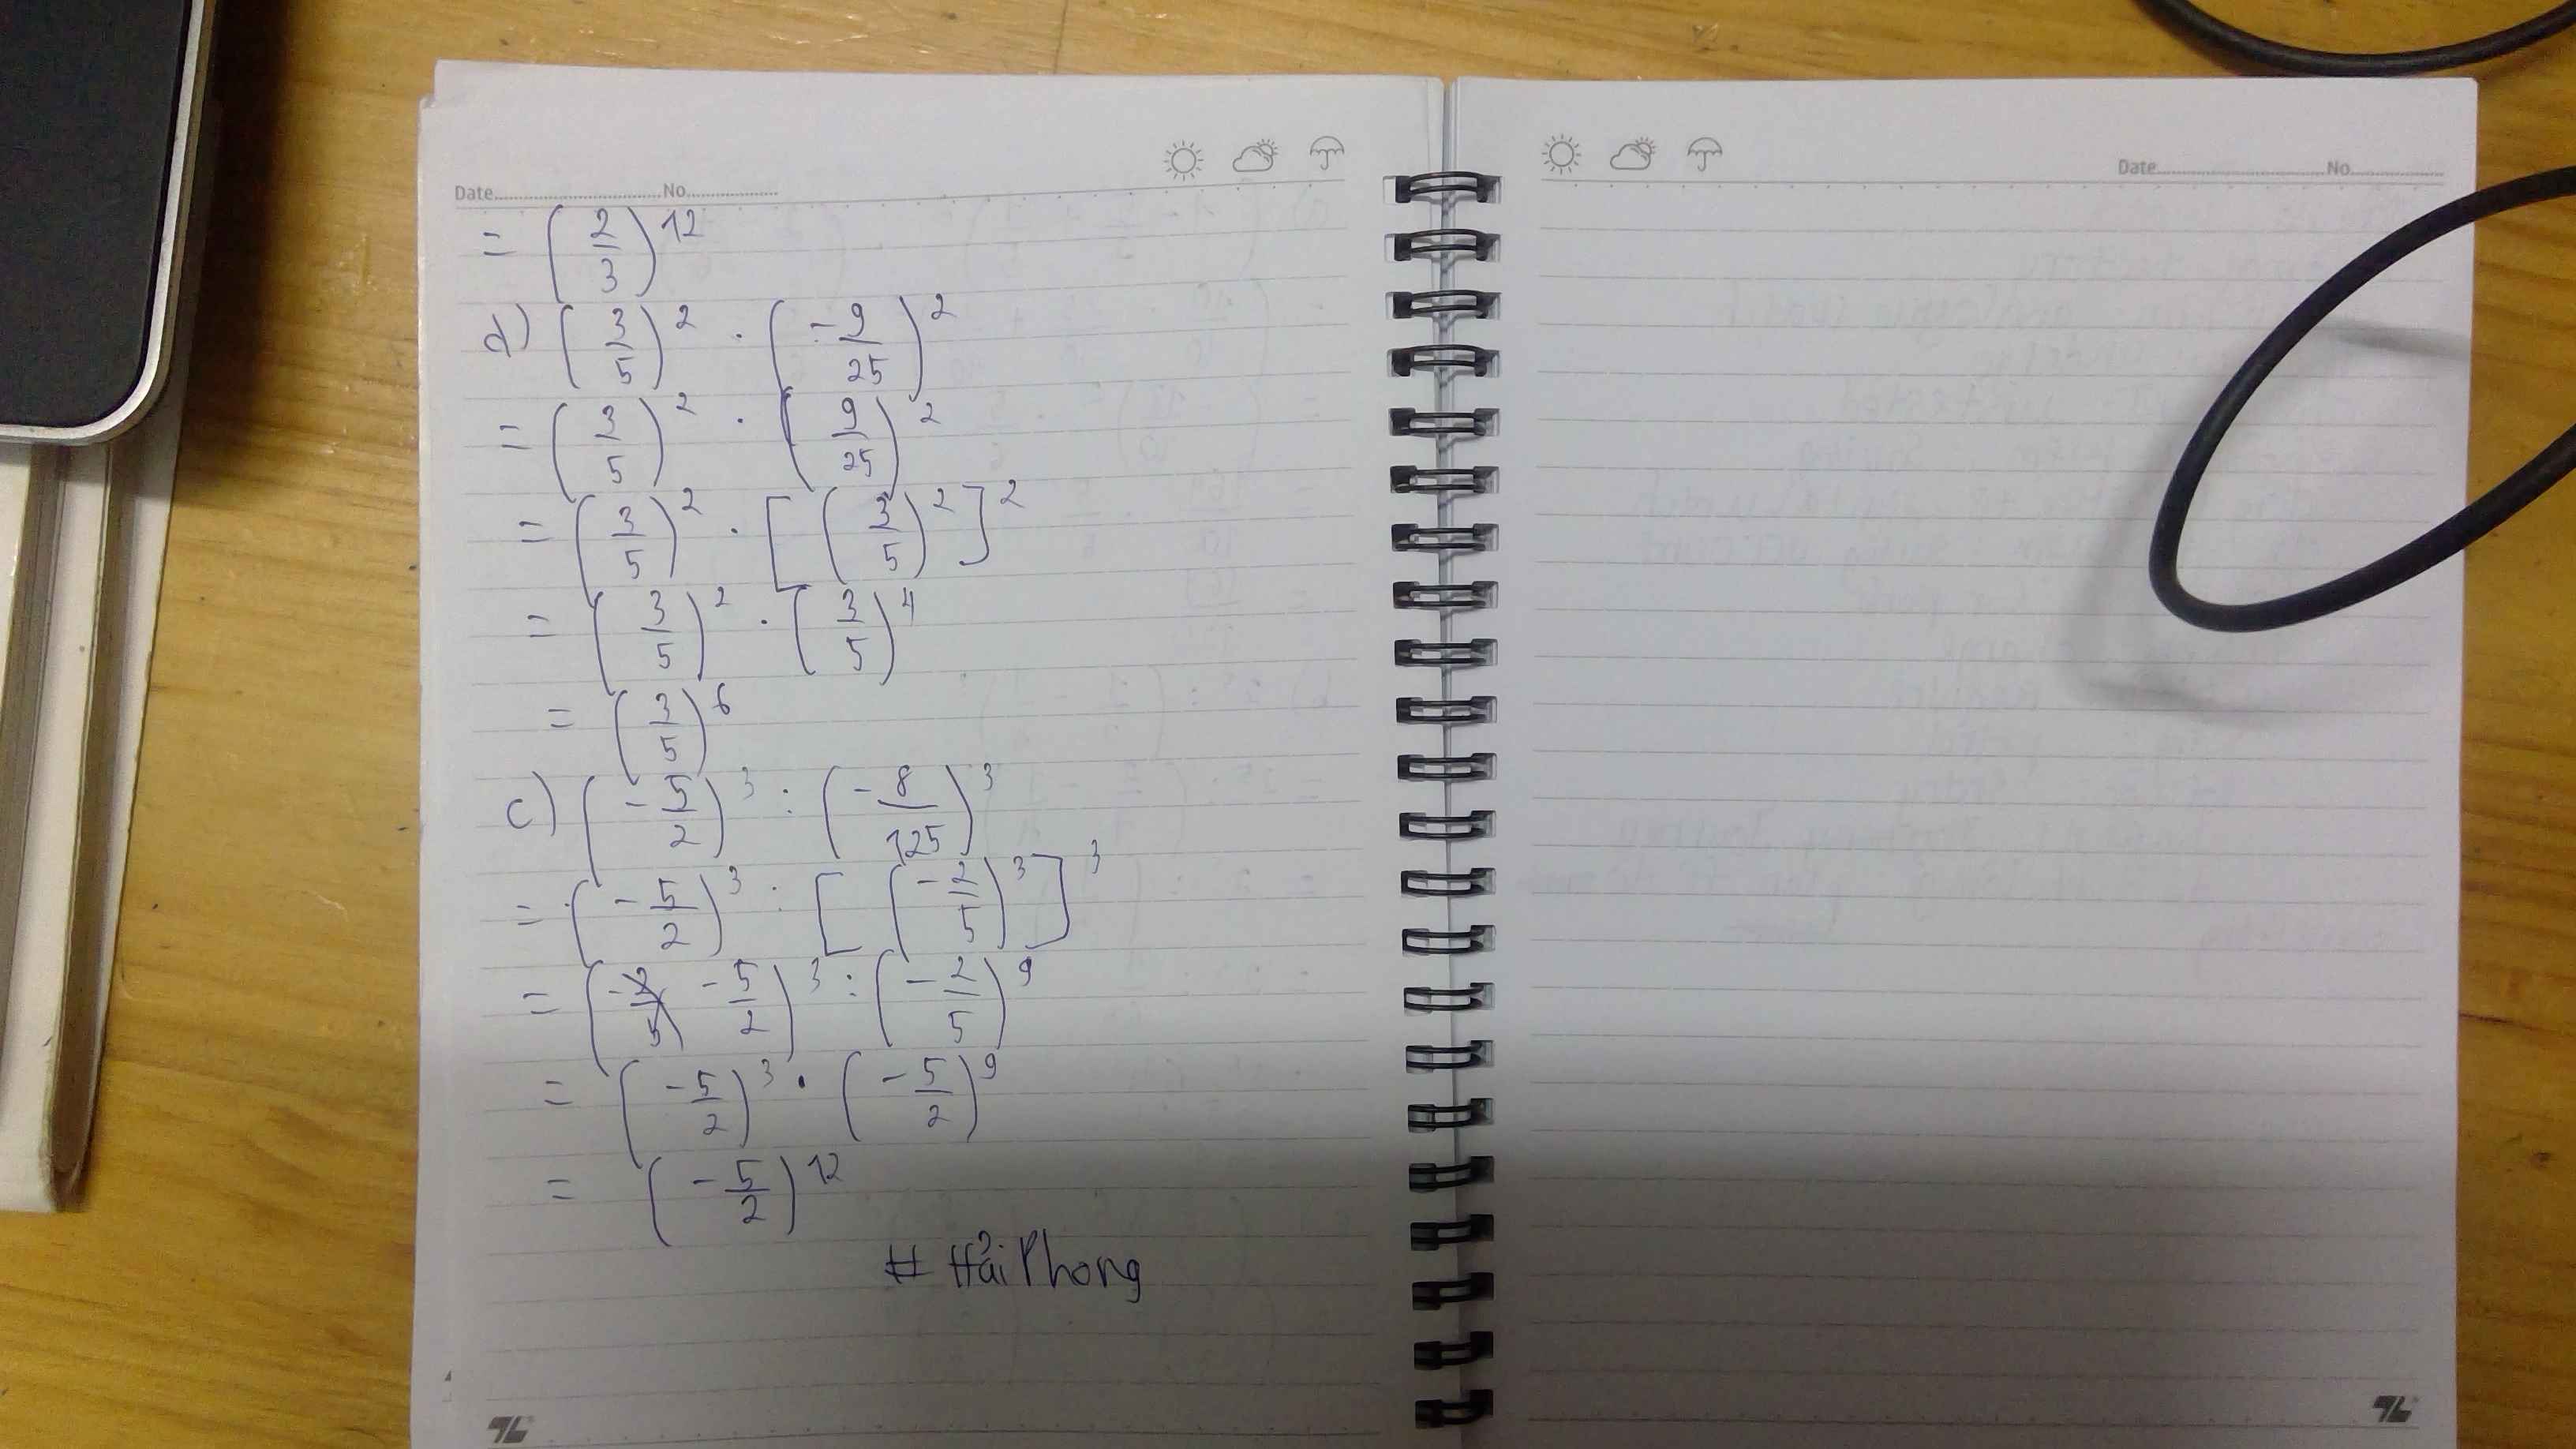 Date No
= (2/3)^12
d) (3/5)^2 . (-9/25)^2
= (3/5)^2 . (9/25)^2
= (3/5)^2 . [(3/5)^2]^2
= (3/5)^2 . (3/5)^4
= (3/5)^6
c) (-5/2)^3 : (-8/125)^3
= (-5/2)^3 : [(-2/5)^3]^3
= (-5/2)^3 : (-2/5)^9
= (-5/2)^3 . (-5/2)^9
= (-5/2)^12
# HảiPhong
Date No